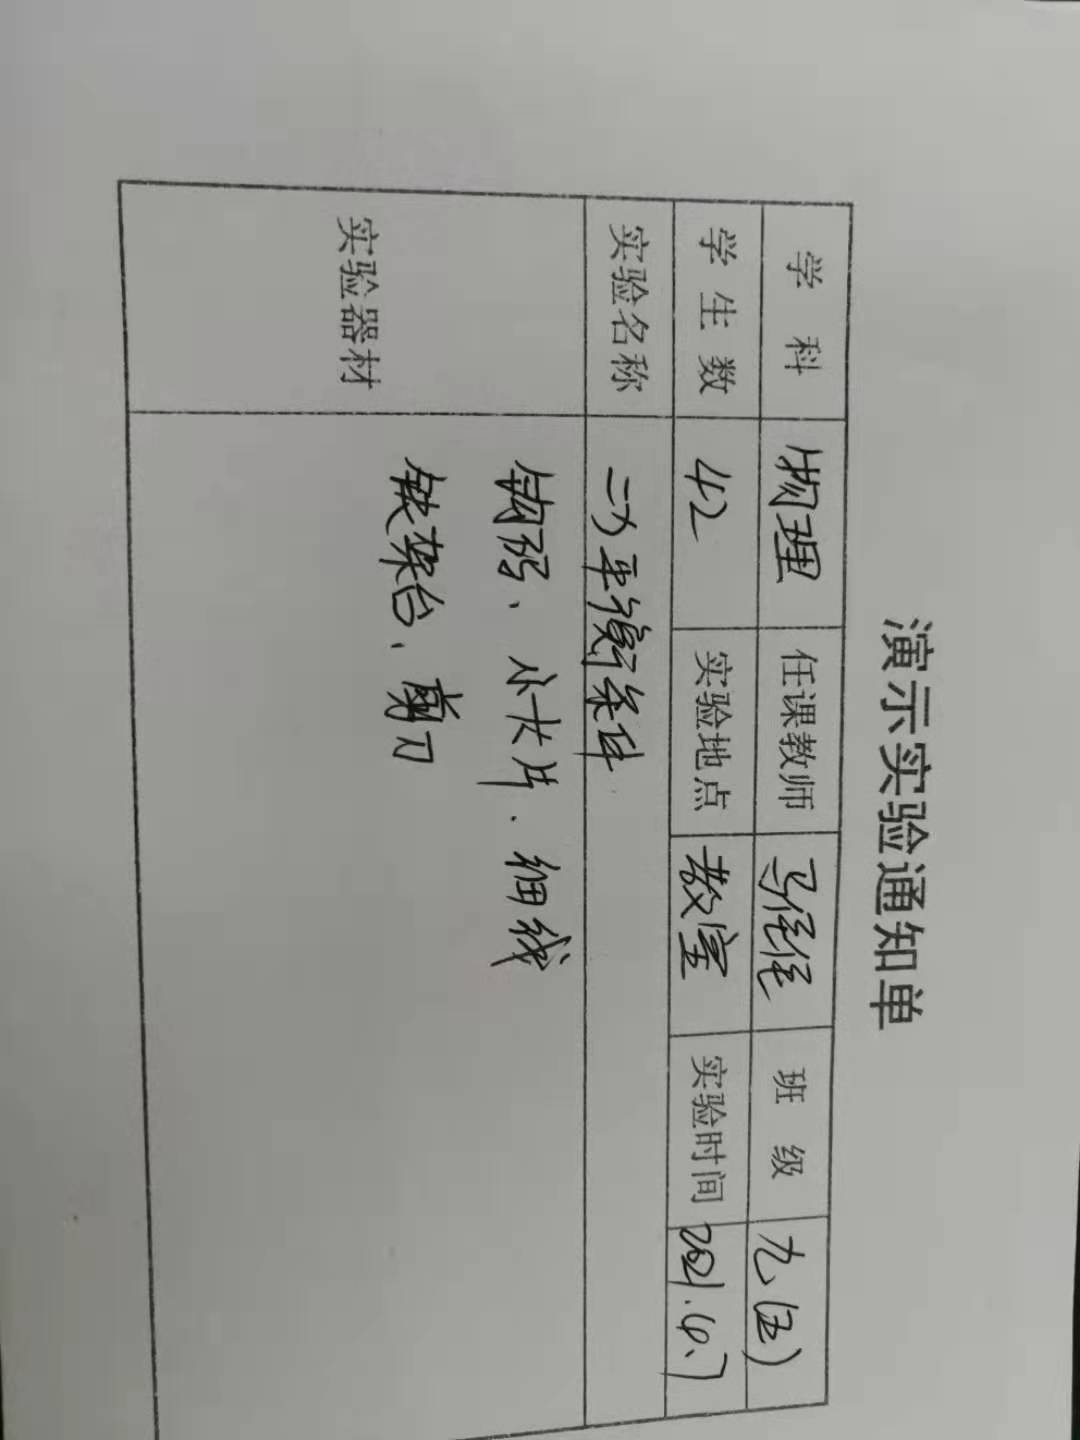 演示实验通知单
学 科 物理 任课教师 马径径 班 级 九(五)
学 生 数 42 实验地点 教室 实验时间 2021.6.7
实验名称 二力平衡条件
实验器材 钩码、小卡片、细线
铁架台、剪刀